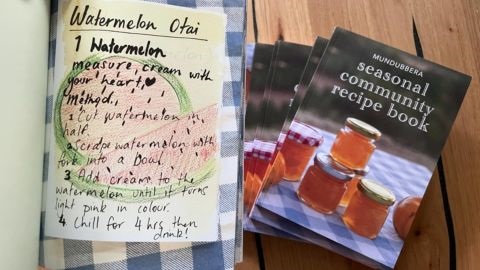 Watermelon Otai
1 Watermelon
measure cream with
your heart,
Method.
1 Cut watermelon in
half.
2 Scrape watermelon with
fork into a bowl.
3 Add cream to the
watermelon until it turns
light pink in colour.
4 Chill for 4 hrs then
drink!
MUNDUBBERA
seasonal
community
recipe book